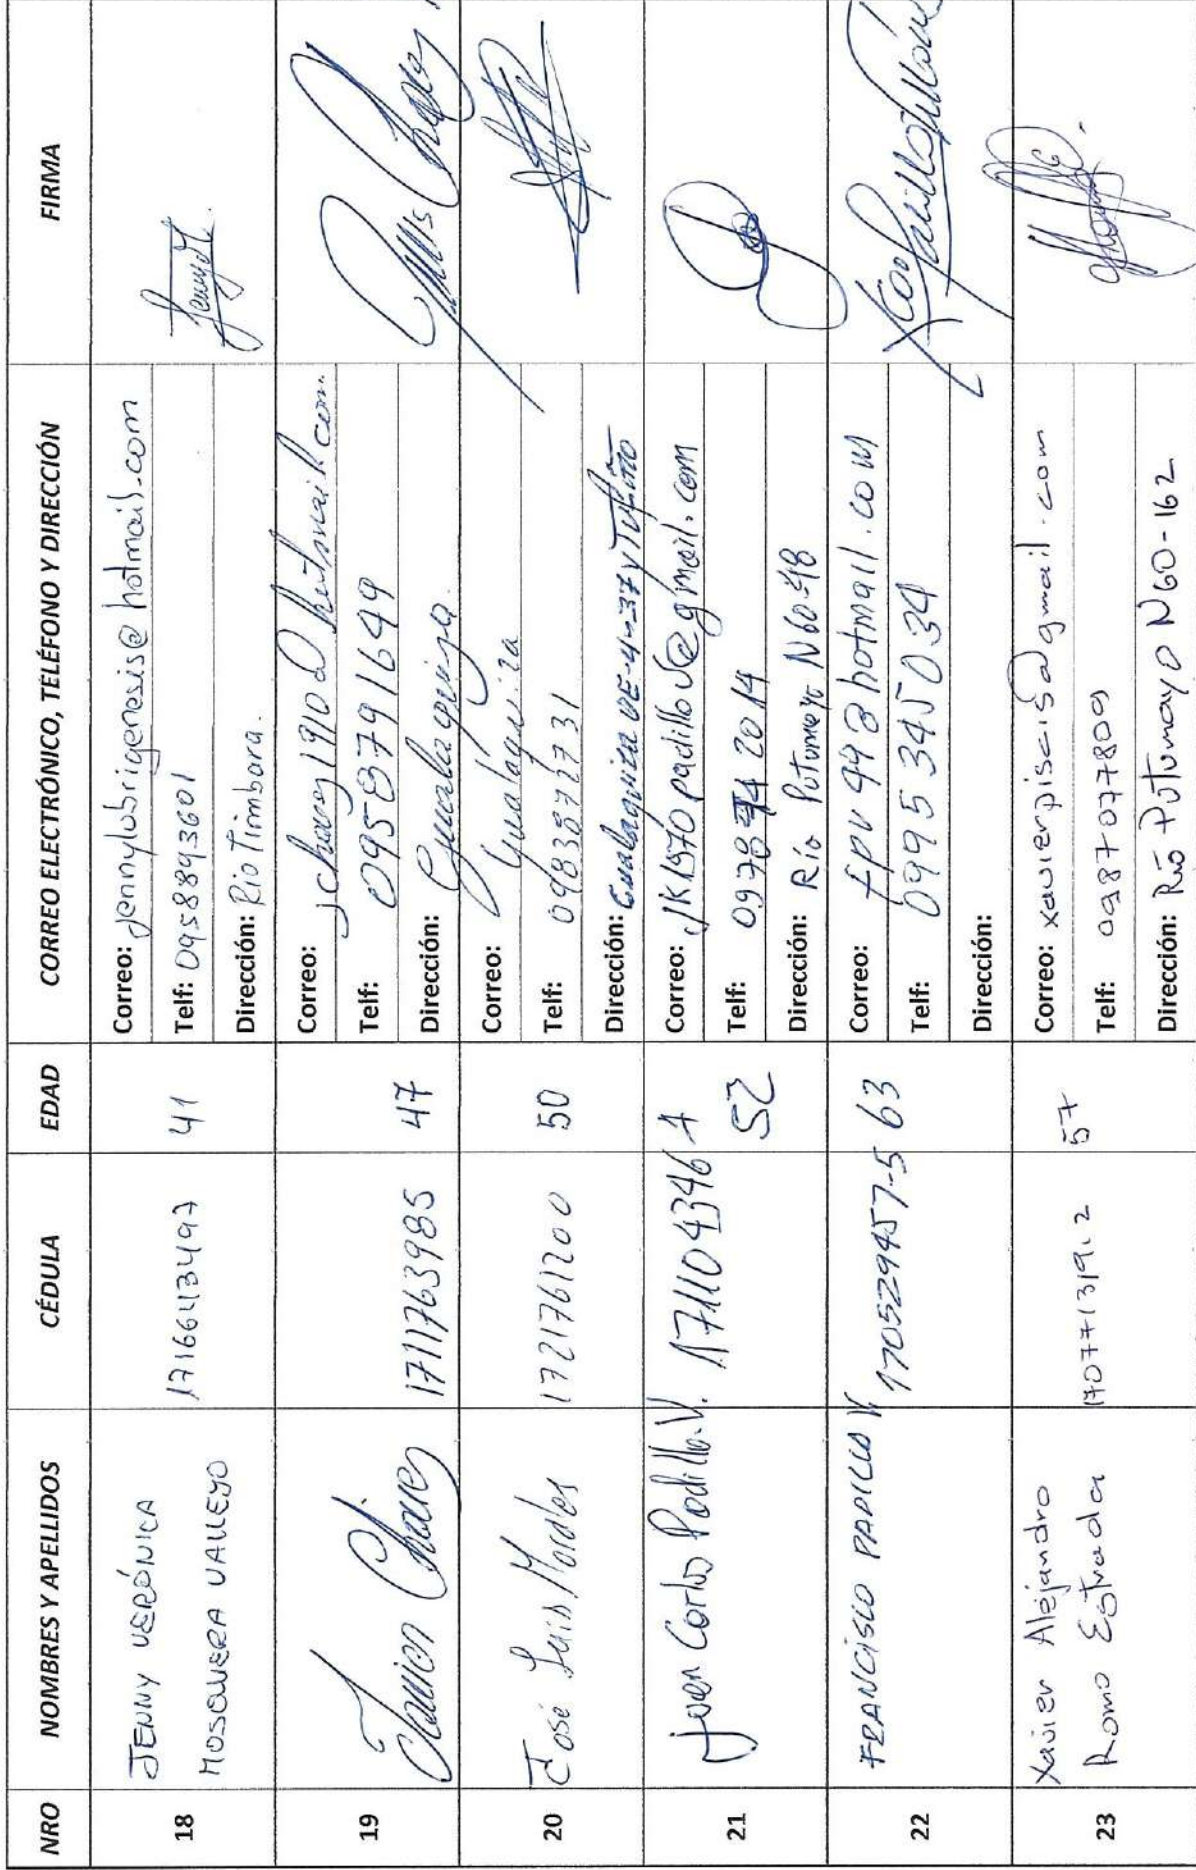 NRO NOMBRES Y APELLIDOS CÉDULA EDAD CORREO ELECTRÓNICO, TELÉFONO Y DIRECCIÓN FIRMA
18
JENNY VERÓNICA
MOSQUERA VALLEJO
1716643497
41
Correo: jennylubrigenesis@hotmail.com
Telf: 0958893601
Dirección: Rio Timbara.
19
Javier Chavez
1711763985
47
Correo: jchavez1910@hotmail.com
Telf: 0958791649
Dirección: Gualaquiza.
20
José Luis Morales
1721761200
50
Correo: Gualaquiza
Telf: 0983872731
Dirección: Gualaquiza OE-4-37 y Tufiño
21
Juan Carlos Padilla V.
171104346 1
52
Correo: JK1570padillav@gmail.com
Telf: 2014
Dirección: Río Putumayo N60-48
22
FRANCISCO PADILLA V.
170529457-5
63
Correo: fpv448hotmail.com
Telf: 0995345034
Dirección:
23
Xavier Alejandro
Romo Estrada
170771319.2
57
Correo: xavierpiscis@gmail.com
Telf: 0987077809
Dirección: Río Putumayo N60-162